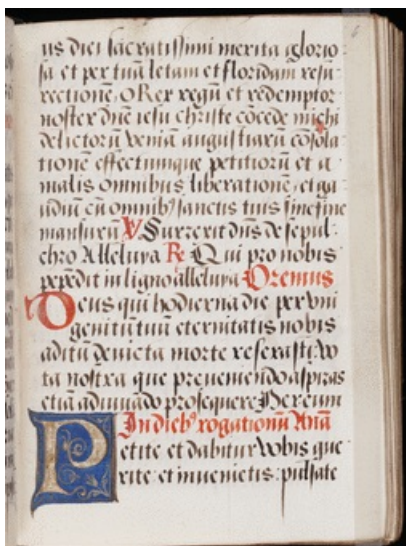 us diei sacratissimi merita glorio
sa et per tuã letam et floridam resu
rectionẽ. O Rex regũ et redemptor
noster dñe iesu christe cõcede michi
delictorũ veniã angustiarũ cõsola
tionẽ effectumque petitiorũ et a
malis omnibus liberationẽ, et ga
udiũ cũ omnibꝰ sanctis tuis sine fine
mansurũ V Surrexit dñs de sepul
chro Alleluya Re Qui pro nobis
pepẽdit in ligno alleluya Oremus
Deus qui hodierna die per vni
genitũ tuũ eternitatis nobis
aditũ deuicta morte reserasti: vo
ta nostra que preueniendo aspiras
etiã adiuuãdo prosequere Per eum
In diebꝰ rogationũ Anã
Petite et dabitur vobis que
rite et inuenietis: pulsate